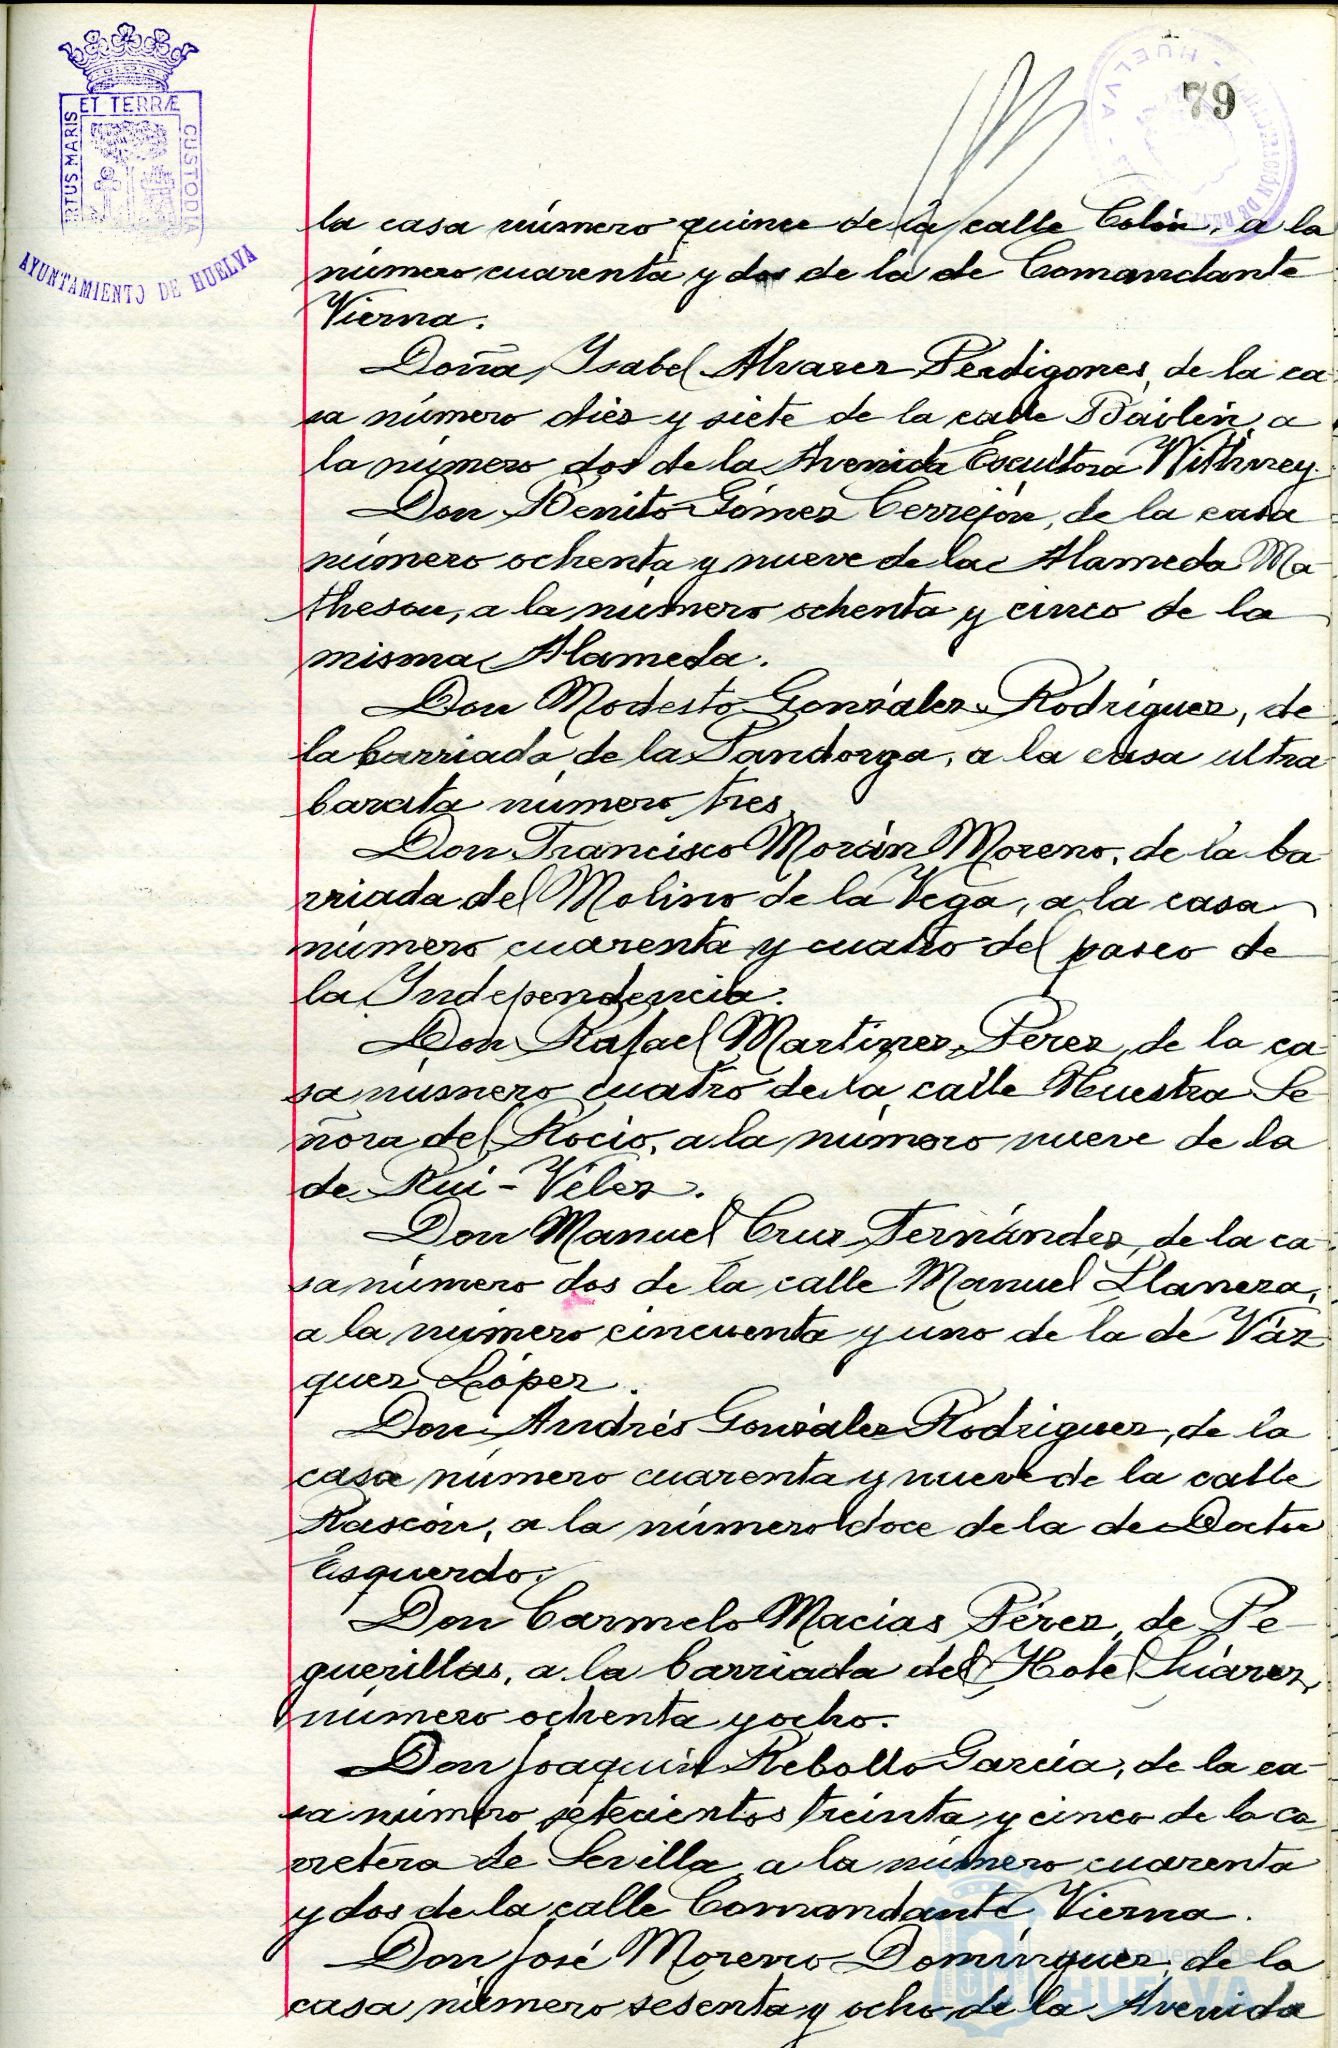 ET TERRÆ
RTUS MARIS
CUSTODIA
AYUNTAMIENTO DE HUELVA
HUELVA
79
la casa número quince de la calle Colón, a la
número cuarenta y dos de la de Comandante
Vierna.
Doña Isabel Alvarez Perdigones, de la ca
sa número diez y siete de la calle Bailén, a
la número dos de la Avenida Escultora Withney.
Don Benito Gómez Cerrejón, de la casa
número ochenta y nueve de la Alameda Ma
theson, a la número ochenta y cinco de la
misma Alameda.
Don Modesto González Rodríguez, de
la barriada de la Pandorga, a la casa ultra
barata número tres.
Don Francisco Morán Moreno, de la ba
rriada del Molino de la Vega, a la casa
número cuarenta y cuatro del paseo de
la Independencia.
Don Rafael Martínez Pérez, de la ca
sa número cuatro de la calle Nuestra Se
ñora del Rocío, a la número nueve de la
de Rui-Vélez.
Don Manuel Cruz Fernández, de la ca
sa número dos de la calle Manuel Llanera,
a la número cincuenta y uno de la de Váz
quez López.
Don Andrés González Rodríguez, de la
casa número cuarenta y nueve de la calle
Rascón, a la número doce de la de Doctor
Esquerdo.
Don Carmelo Macías Pérez, de Pe-
guerillas, a la barriada del Hotel Suárez,
número ochenta y ocho.
Don Joaquín Rebollo García, de la ca-
sa número setecientos treinta y cinco de la ca
rretera de Sevilla, a la número cuarenta
y dos de la calle Comandante Vierna.
Don José Moreno Domínguez, de la
casa número sesenta y ocho de la Avenida
Ayuntamiento de
HUELVA